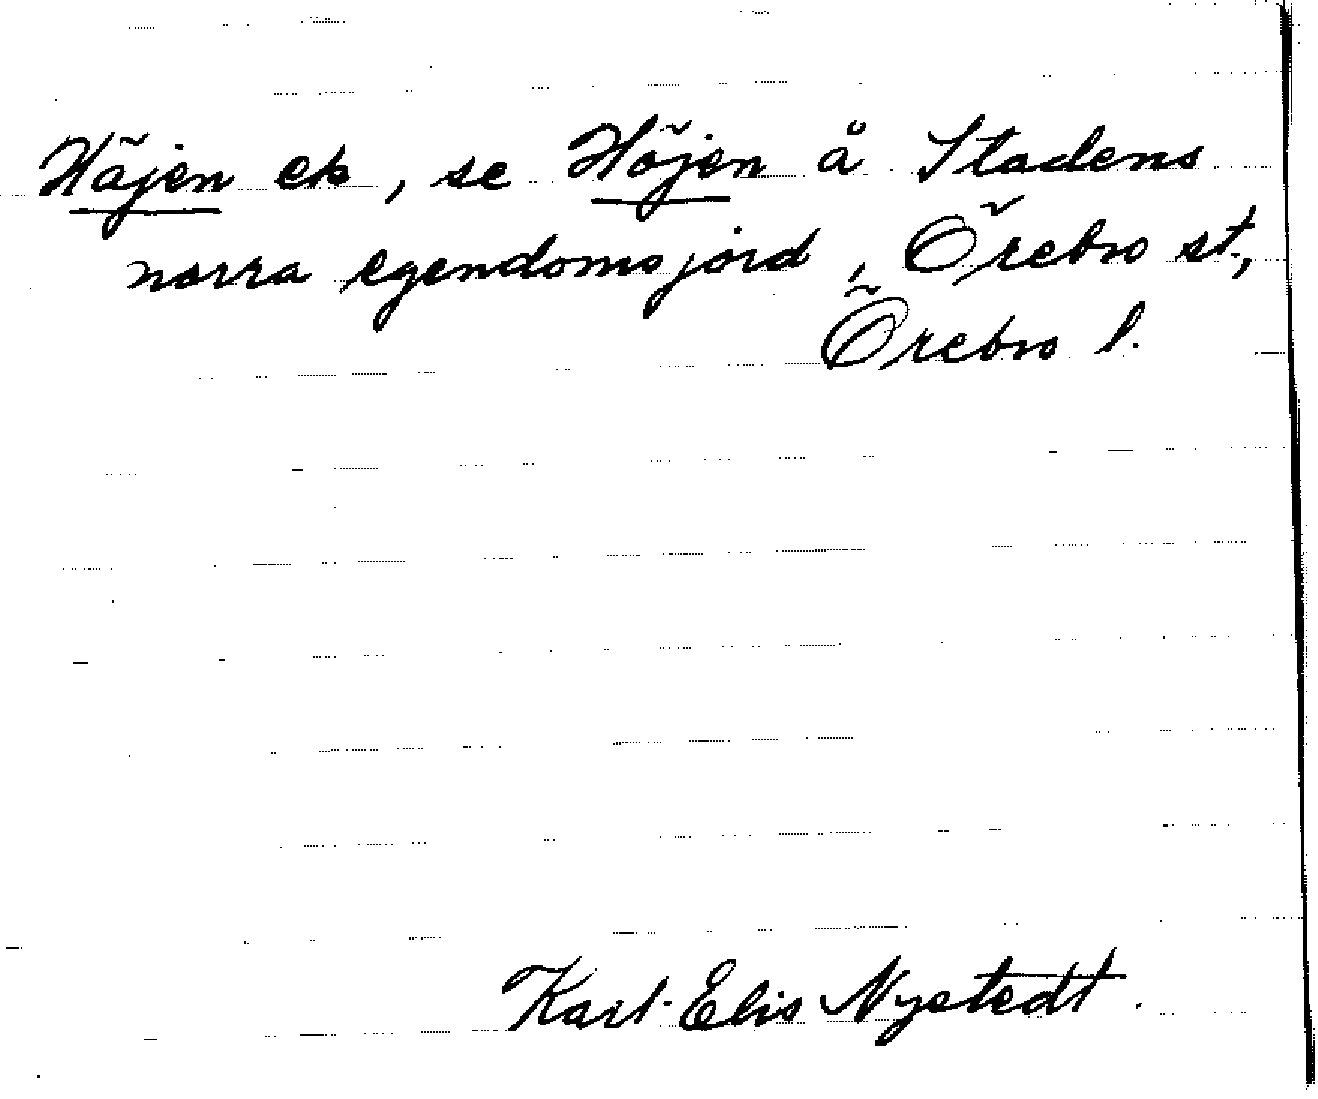 Häjen ek, se Höjen å Stadens
norra egendomsjord, Örebro st,
Örebro l.
Karl-Elis Nystedt.